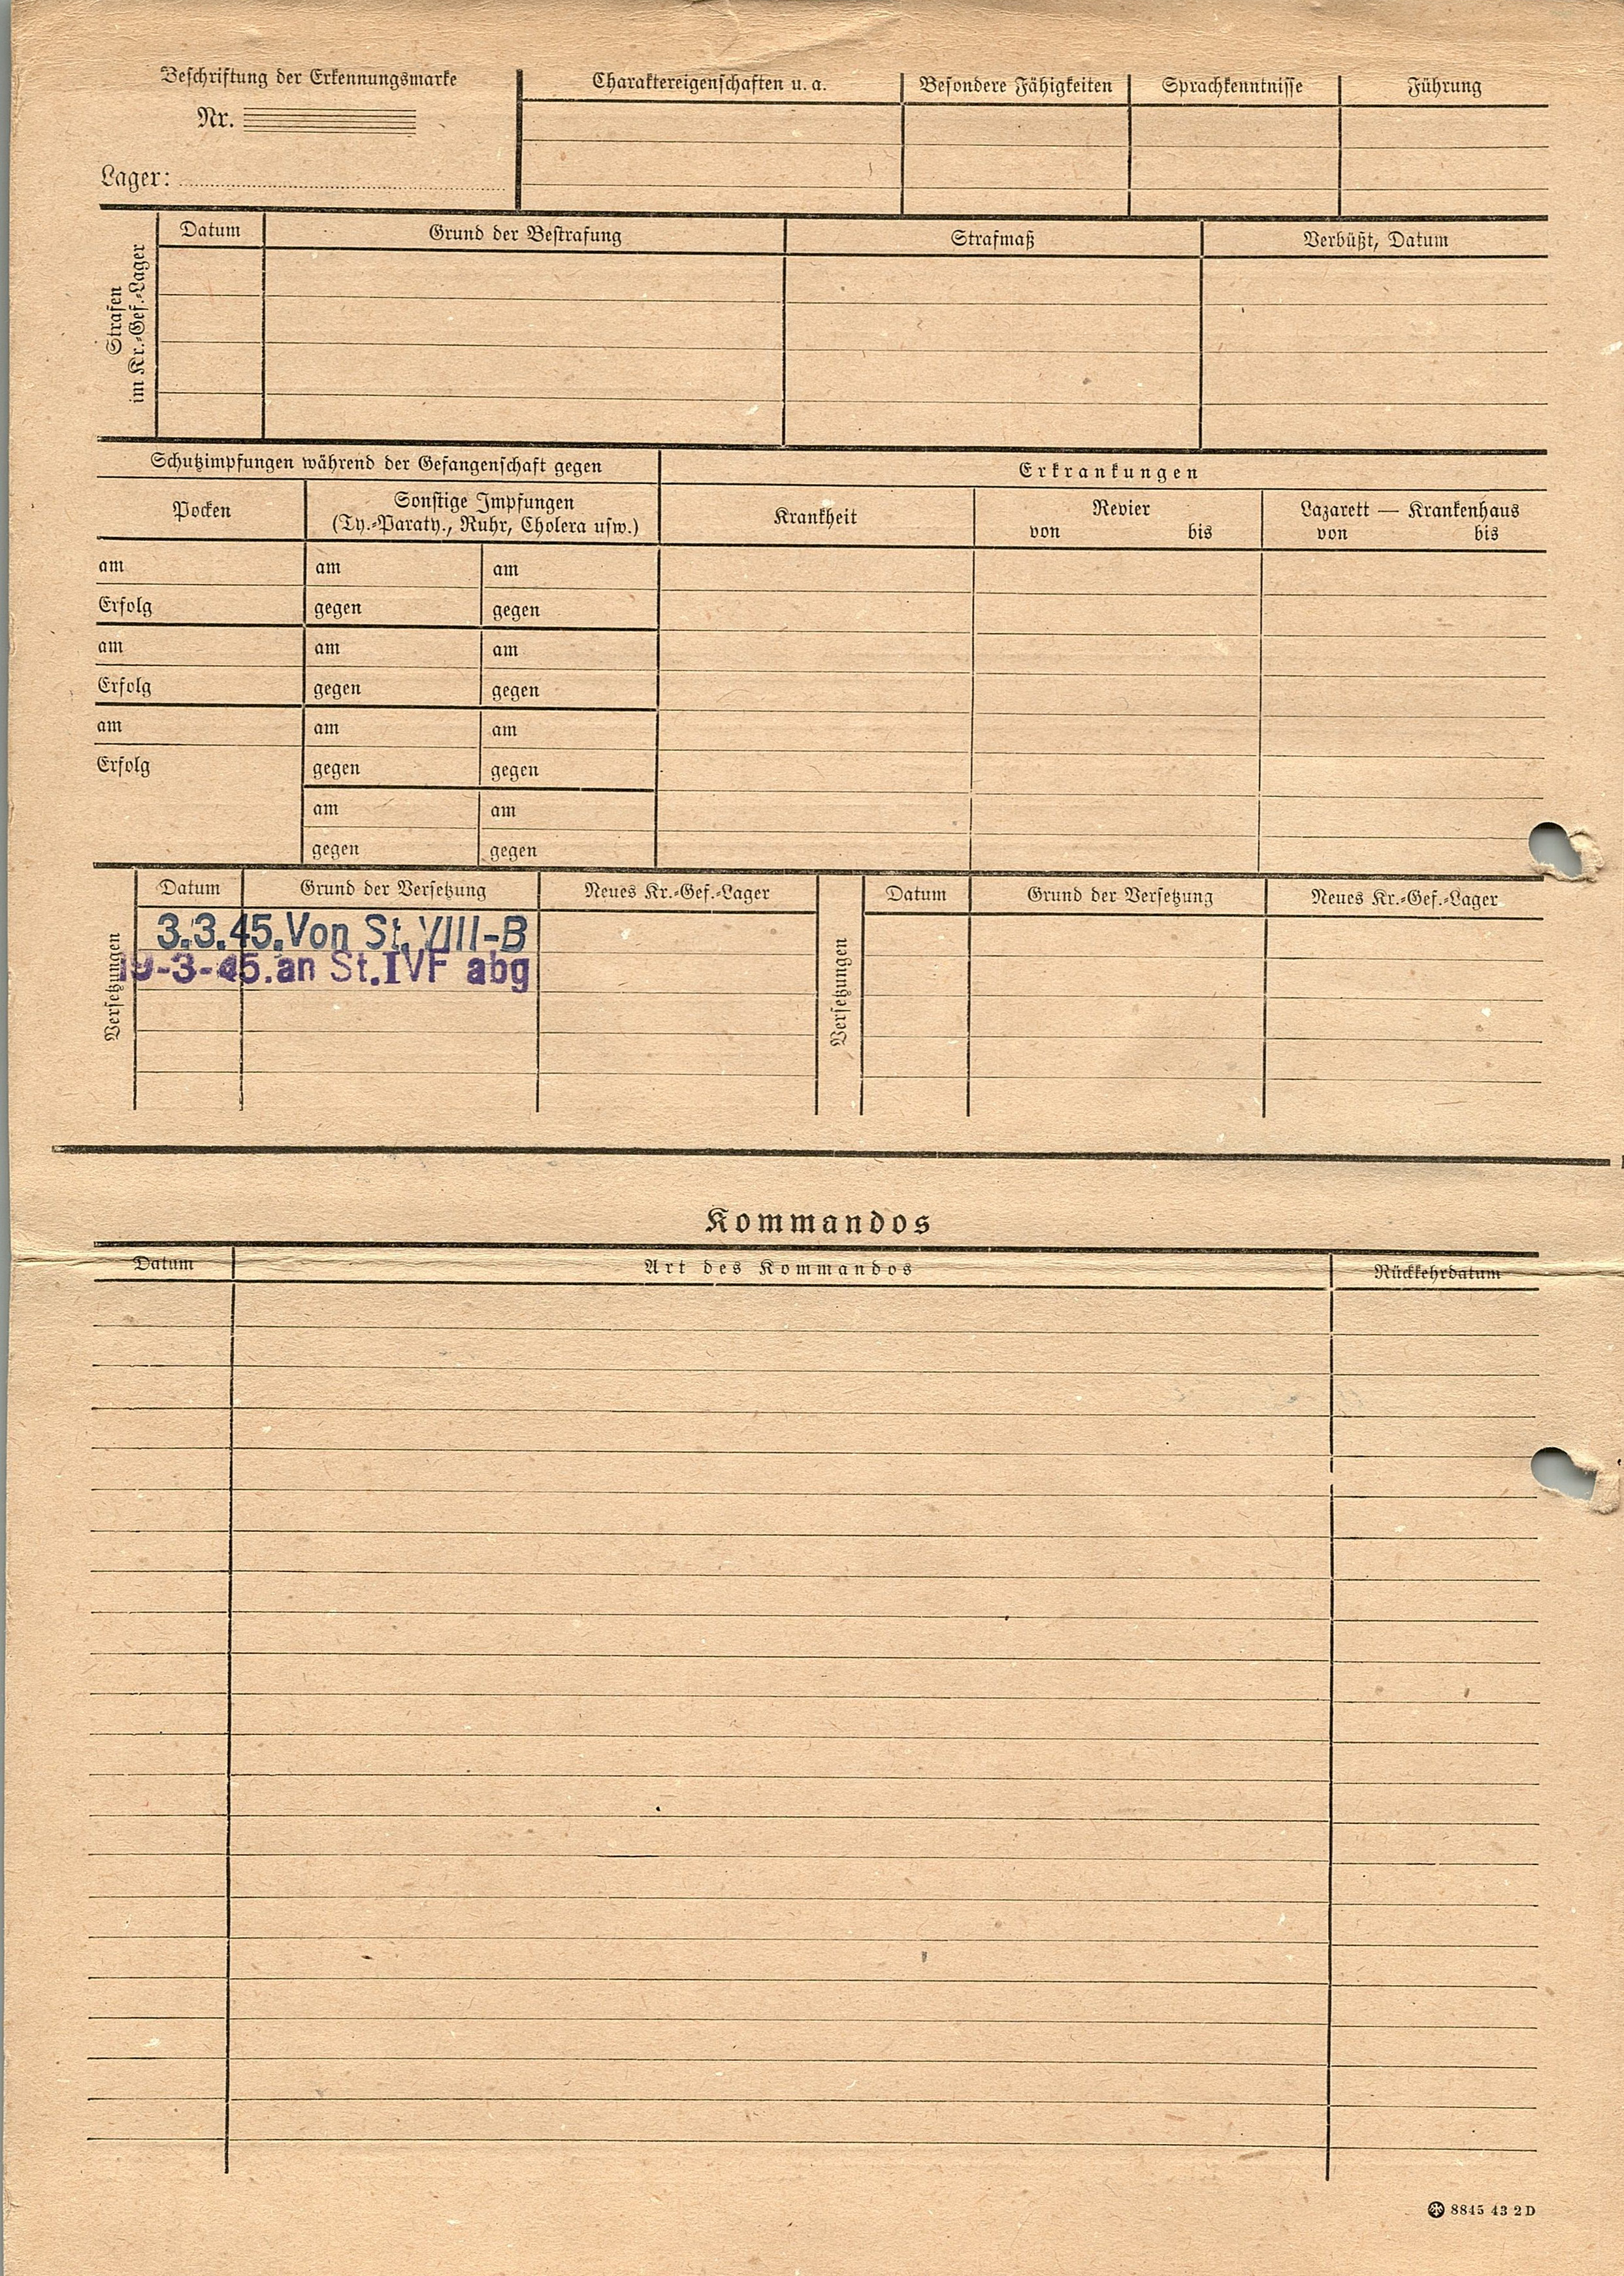 Beschriftung der Erkennungsmarke
Nr.
Lager:
Charaktereigenschaften u. a.
Besondere Fähigkeiten
Sprachkenntnisse
Führung
Strafen
im Kr.-Gef.-Lager
Datum
Grund der Bestrafung
Strafmaß
Verbüßt, Datum
Schutzimpfungen während der Gefangenschaft gegen
Erkrankungen
Pocken
Sonstige Impfungen
(Ty.-Paraty., Ruhr, Cholera usw.)
Krankheit
Revier
von bis
Lazarett — Krankenhaus
von bis
am am am
Erfolg gegen gegen
am am am
Erfolg gegen gegen
am am am
Erfolg gegen gegen
am am
gegen gegen
Versetzungen
Datum
Grund der Versetzung
Neues Kr.-Gef.-Lager
3.3.45.Von St. VIII-B
19-3-45.an St.IVF abg
Versetzungen
Datum
Grund der Versetzung
Neues Kr.-Gef.-Lager
Kommandos
Datum
Art des Kommandos
Rückkehrdatum
8845 43 2 D